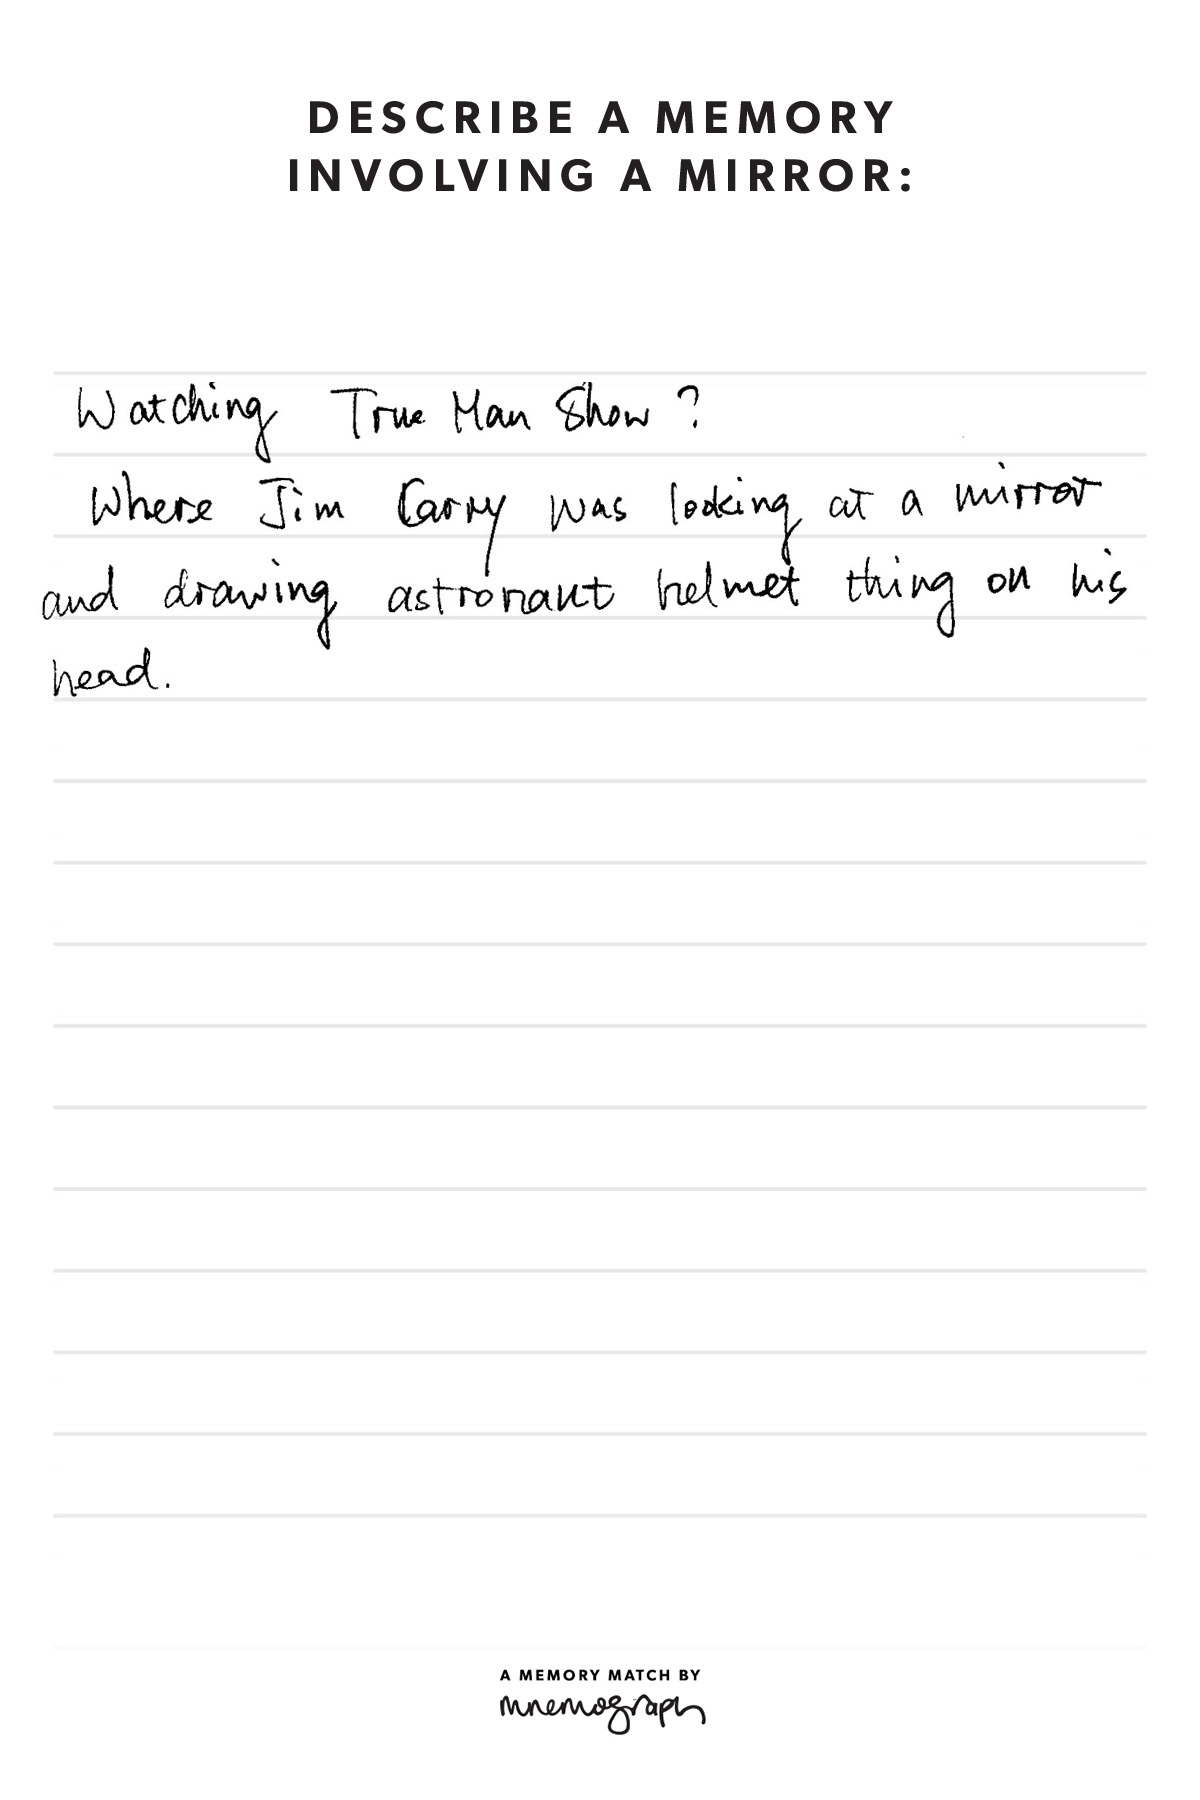 DESCRIBE A MEMORY
INVOLVING A MIRROR:
Watching True Man Show?
Where Jim Carry was looking at a mirror
and drawing astronaut helmet thing on his
head.
A MEMORY MATCH BY
mnemograph